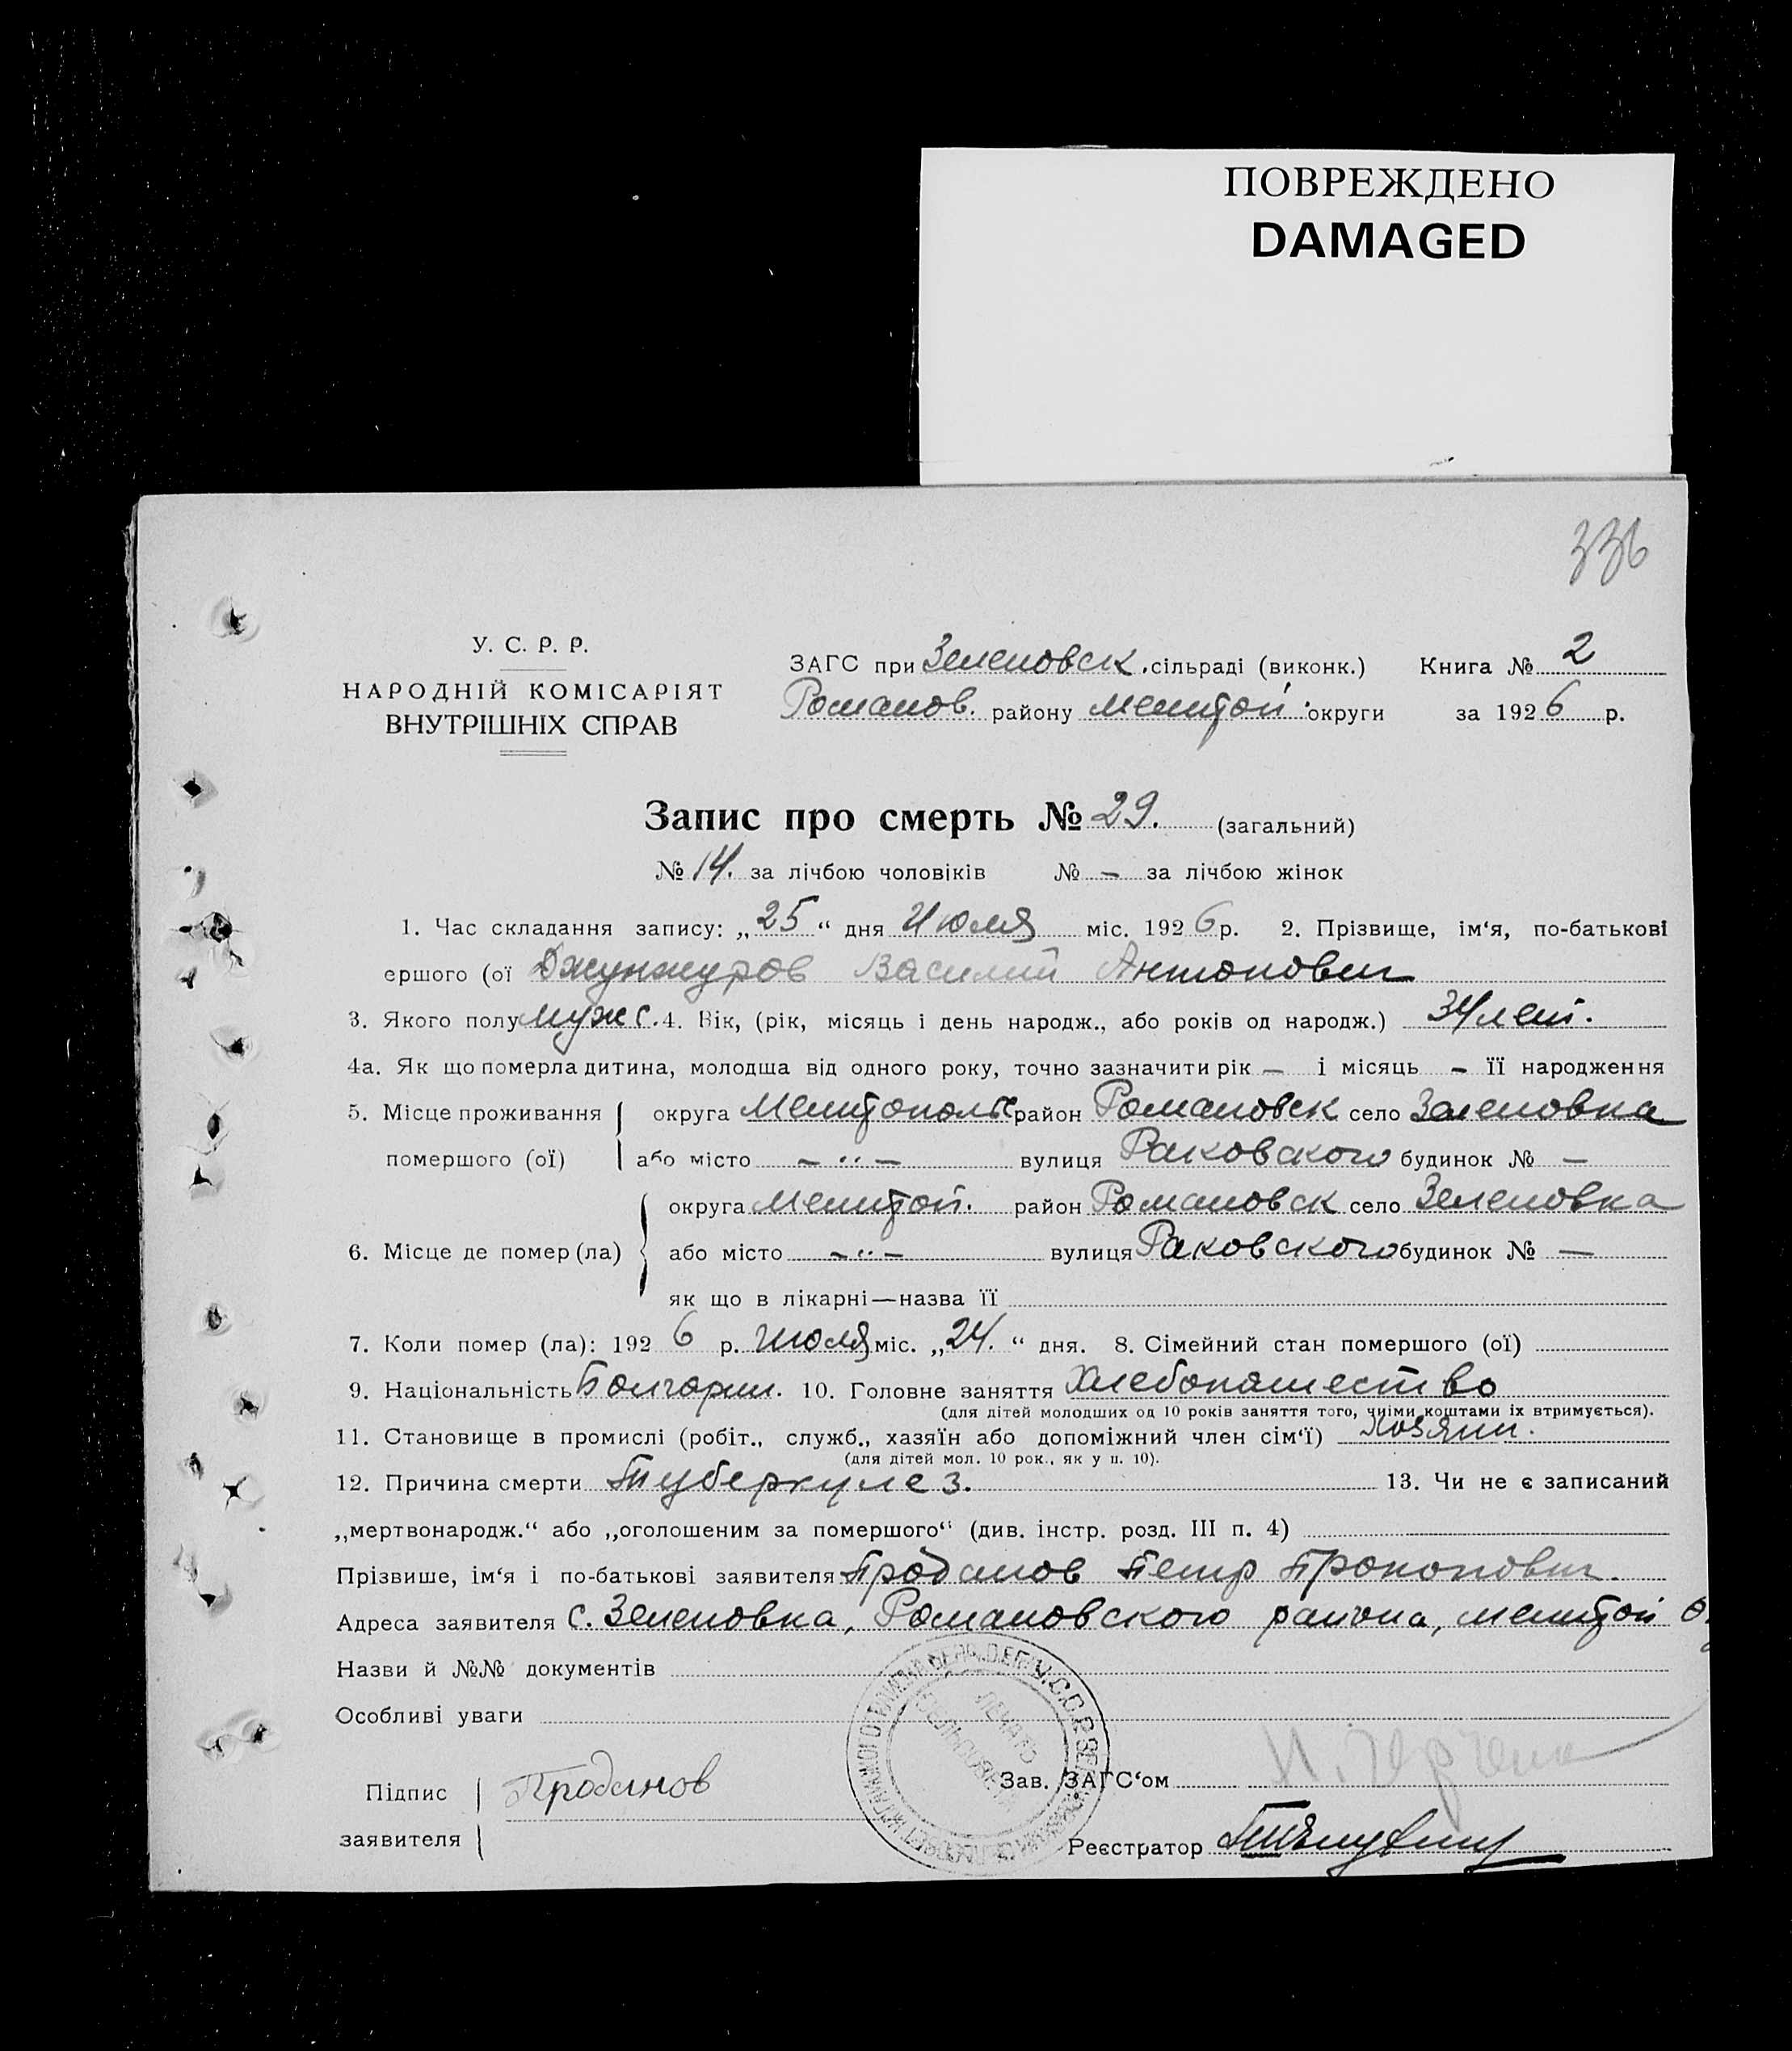 ПОВРЕЖДЕНО
DAMAGED
336
У. С. Р. Р.
НАРОДНІЙ КОМІСАРІЯТ
ВНУТРІШНІХ СПРАВ
ЗАГС при Зеленовск. сільраді (виконк.) Книга № 2
Романов. району Мелитоп. округи за 1926 р.
Запис про смерть № 29. (загальний)
№ 14. за лічбою чоловіків № — за лічбою жінок
1. Час складання запису: „25“ дня Июля міс. 1926 р. 2. Прізвище, ім‘я, по-батькові
ершого (ої Джунжуров Василий Антонович
3. Якого полу мужс. 4. Вік, (рік, місяць і день народж., або років од народж.) 34 лет.
4а. Як що померла дитина, молодша від одного року, точно зазначити рік — і місяць — її народження
5. Місце проживання помершого (ої) округа Мелитопольс район Романовск село Зеленовка
або місто — „ — вулиця Раковского будинок № —
6. Місце де помер (ла) округа Мелитоп. район Романовск село Зеленовка
або місто — „ — вулиця Раковского будинок № —
як що в лікарні—назва її
7. Коли помер (ла): 1926 р. Июля міс. „24.“ дня. 8. Сімейний стан помершого (ої)
9. Національність Болгарин. 10. Головне заняття Хлебопашество
(для дітей молодших од 10 років заняття того, чиїми коштами їх втримується).
11. Становище в промислі (робіт., служб., хазяїн або допоміжний член сім‘ї) Хозяин.
(для дітей мол. 10 рок., як у п. 10).
12. Причина смерти Туберкулез. 13. Чи не є записаний
„мертвонародж.“ або „оголошеним за помершого“ (див. інстр. розд. III п. 4)
Прізвише, ім‘я і по-батькові заявителя Проданов Петр Прокопович.
Адреса заявителя с. Зеленовка, Романовского района, Мелитоп
Назви й №№ документів
Особливі уваги
Підпис заявителя Проданов
Зав. ЗАГС‘ом
Реєстратор